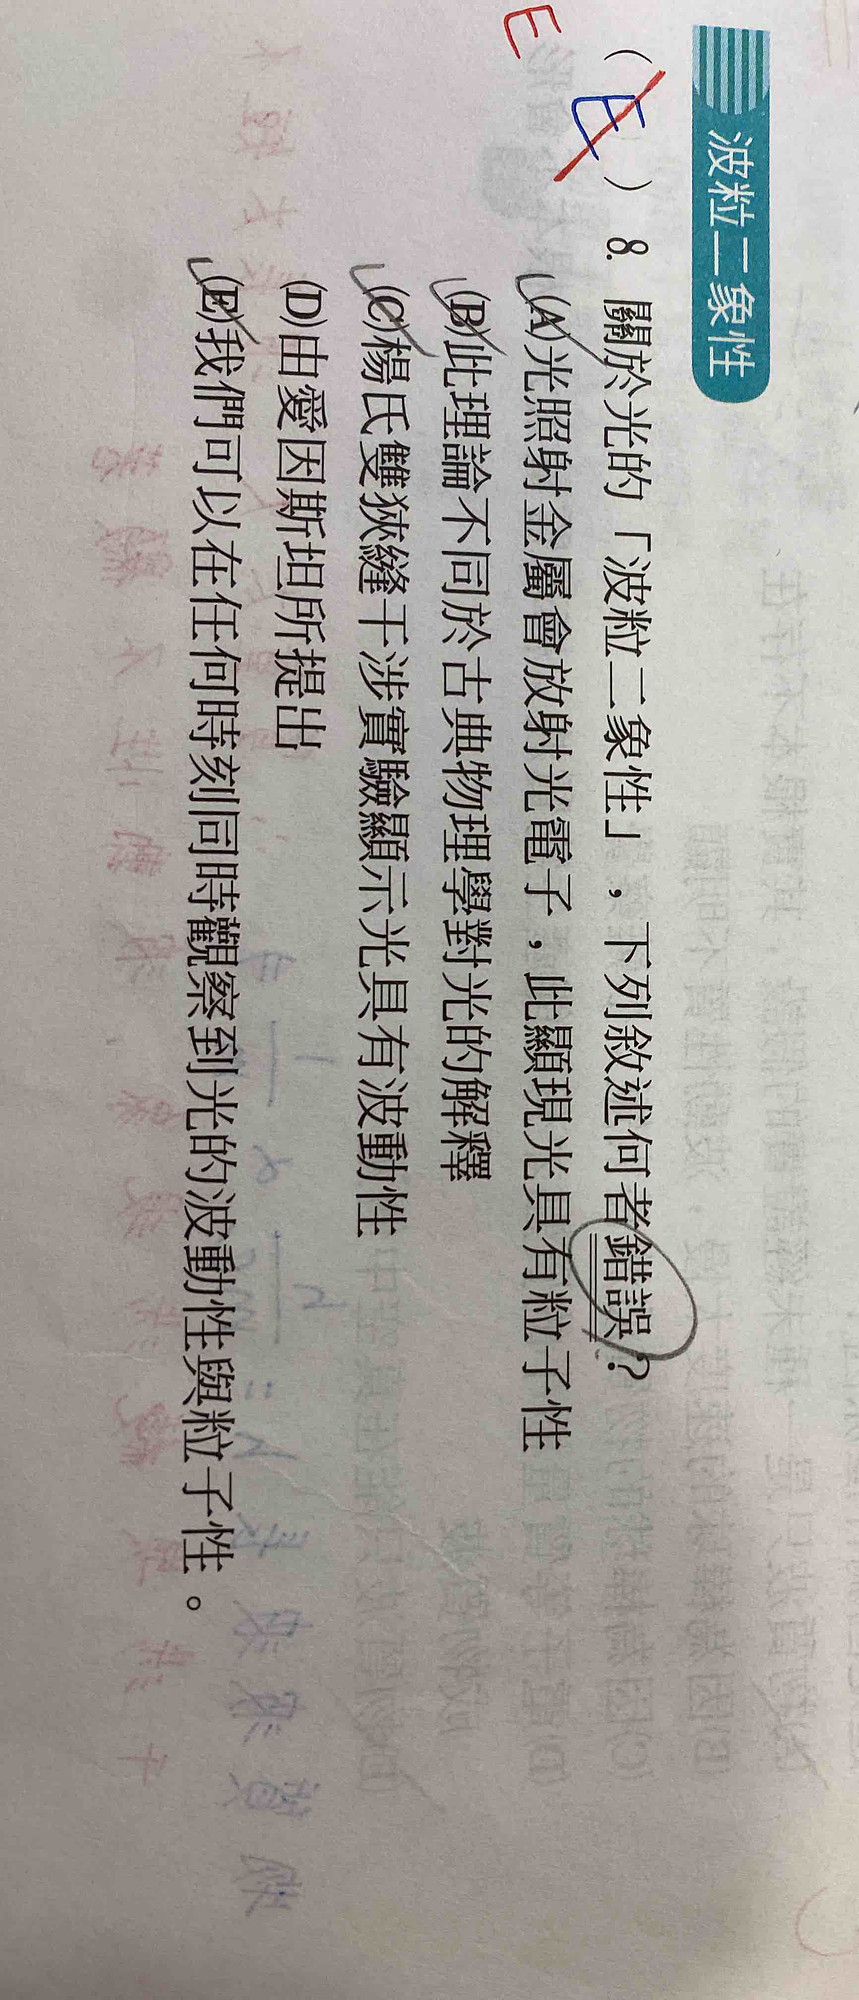 波粒二象性
E
( E ) 8. 關於光的「波粒二象性」，下列敘述何者錯誤？
(A)光照射金屬會放射光電子，此顯現光具有粒子性
(B)此理論不同於古典物理學對光的解釋
(C)楊氏雙狹縫干涉實驗顯示光具有波動性
(D)由愛因斯坦所提出
(E)我們可以在任何時刻同時觀察到光的波動性與粒子性。